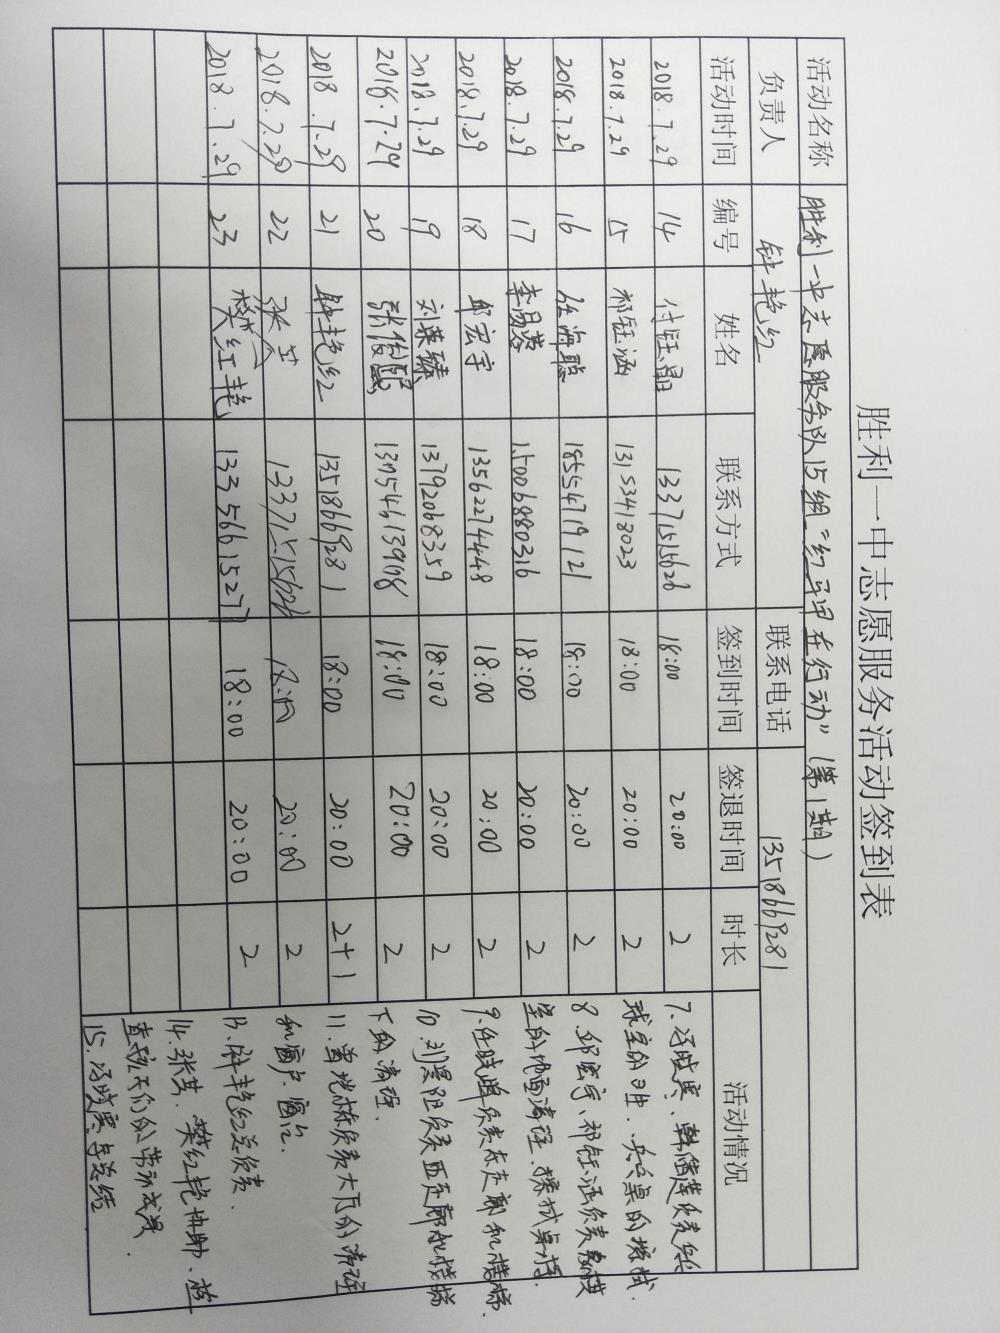 胜利一中志愿服务活动签到表
活动名称 胜利一中志愿服务队15组“红马甲在行动”(第1期)
负责人 钟艳红 联系电话 13518669281
活动时间 编号 姓名 联系方式 签到时间 签退时间 时长 活动情况
2018.7.29 14 付钰晶 13371515626 18:00 20:00 2
2018.7.29 15 祁钰涵 13153418023 18:00 20:00 2
2018.7.29 16 任海聪 18554719121 18:00 20:00 2
2018.7.29 17 15006880316 18:00 20:00 2
2018.7.29 18 邱宏宇 13562274448 18:00 20:00 2
2018.7.29 19 刘 13792068359 18:00 20:00 2
2018.7.29 20 张俊熙 18:00 20:00 2
2018.7.29 21 钟艳红 13518669281 18:00 20:00 2+1
2018.7.29 22 张 13371515626 18:00 20:00 2
2018.7.29 23 樊红艳 13356615277 18:00 20:00 2
7. 负责乒乓
球室的卫生、乒乓桌的擦拭.
8. 邱宏宇、祁钰涵负责
室的地面清理、擦拭桌椅.
9. 任晓 负责东走廊和楼梯.
10. 刘 负责西走廊和楼梯
下的清理.
11. 负责大厅的清理
和窗户、窗台.
13. 钟艳红总负责.
14. 张 、樊红艳协助、检
查孩子们的劳动成果.
15. 总结